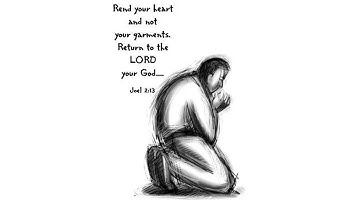 Rend your heart
and not
your garments.
Return to the
LORD
your God.....
Joel 2:13